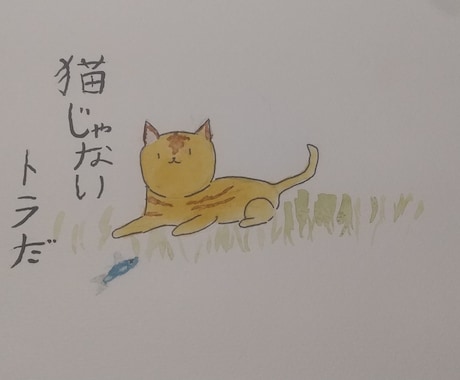 猫じゃない
トラだ